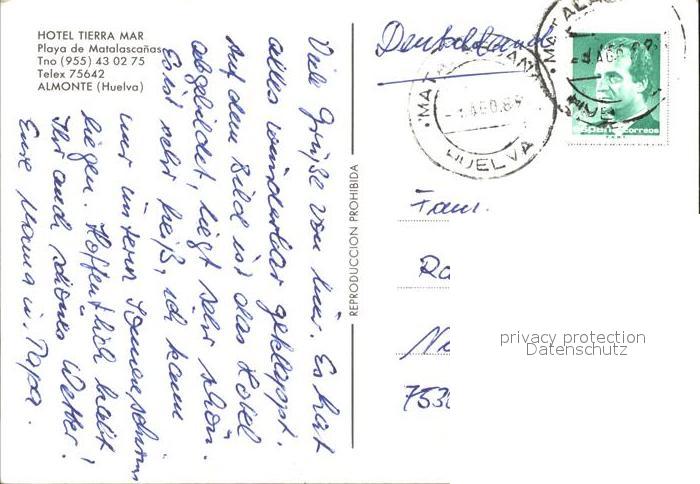 HOTEL TIERRA MAR
Playa de Matalascañas
Tno (955) 43 02 75
Telex 75642
ALMONTE (Huelva)
Viele Grüße von hier. Es hat
alles wunderbar geklappt.
Auf dem Bild ist das Hotel
abgebildet, liegt sehr schön.
Es ist sehr heiß, ich kann
nur unterm Sonnenschirm
liegen. Hoffentlich habt
Ihr auch schönes Wetter!
Eure Mama u. Papa.
REPRODUCCION PROHIBIDA
Deutschland
MATALASCAÑAS
HUELVA
España correos
Fam.
Ra
Ni
753
privacy protection
Datenschutz